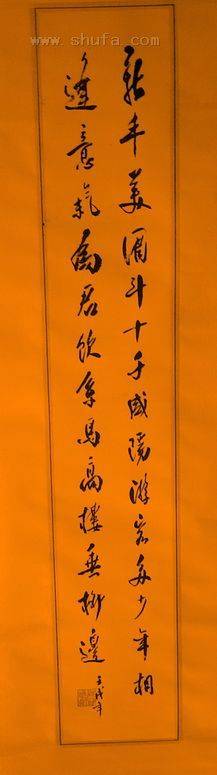 www.shufa.com
新丰美酒斗十千咸陽游客多少年相
逢意氣為君飲系馬高樓垂柳邊
壬戌年